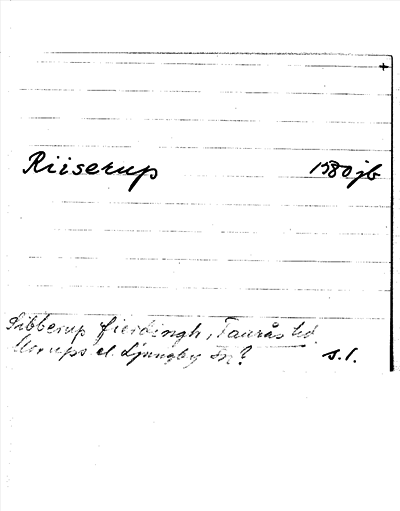 +
Riiserup 1580 jb
Sibberup fierdingh, Faurås hd.
Morups el. Ljungby sn? s. 1.